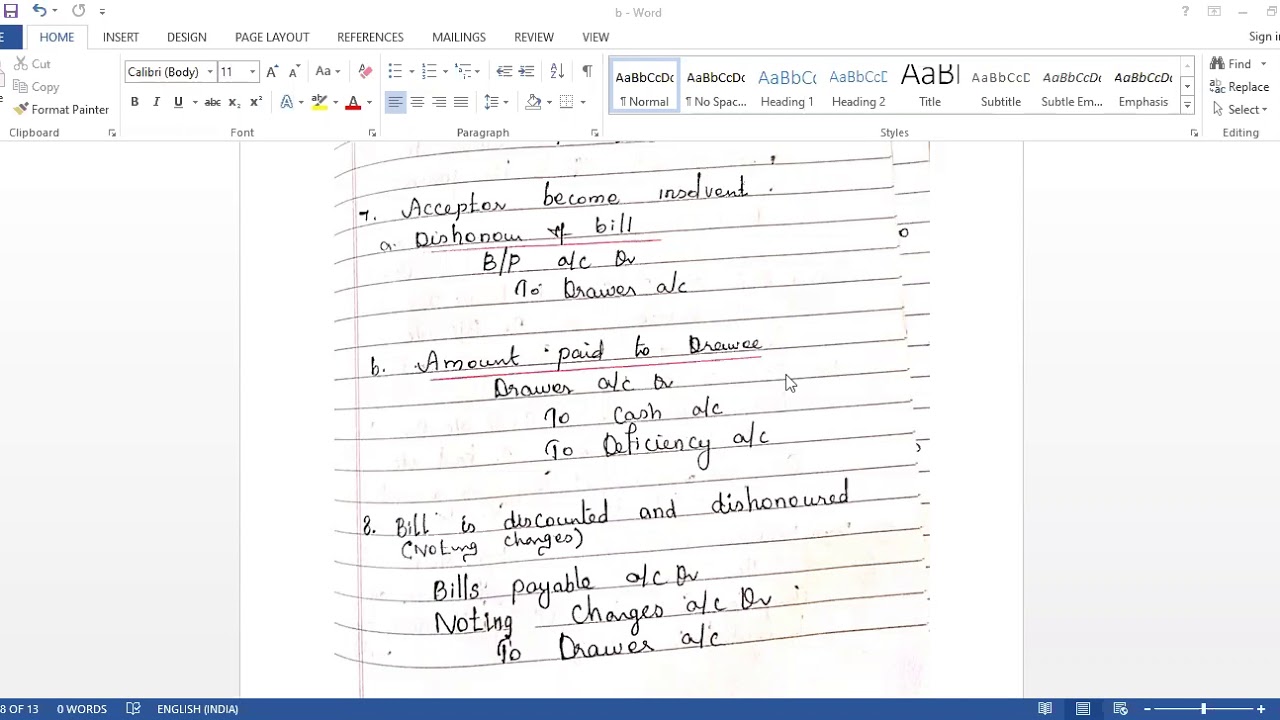 b - Word
? Sign in
HOME INSERT DESIGN PAGE LAYOUT REFERENCES MAILINGS REVIEW VIEW
Cut
Copy
Format Painter
Clipboard
Calibri (Body) 11
Aa
B I U abc x₂ x²
A A
Font
Paragraph
AaBbCcDc AaBbCcDc AaBbC AaBbCcD AaBl AaBbCcD AaBbCcDc AaBbCcDc
¶ Normal ¶ No Spac... Heading 1 Heading 2 Title Subtitle Subtle Em... Emphasis
Styles
Find
Replace
Select
Editing
7. Acceptor become insolvent.
a. Dishonour of bill
B/P a/c Dr
To Drawer a/c
b. Amount paid to Drawee
Drawer a/c Dr
To Cash a/c
To Deficiency a/c
8. Bill is discounted and dishonoured
(Noting changes)
Bills payable a/c Dr
Noting Charges a/c Dr
To Drawer a/c
8 OF 13 0 WORDS ENGLISH (INDIA)